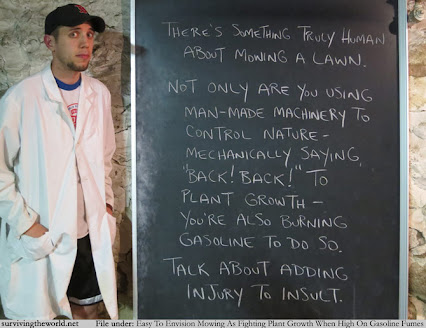 THERE'S SOMETHING TRULY HUMAN
ABOUT MOWING A LAWN.
NOT ONLY ARE YOU USING
MAN-MADE MACHINERY TO
CONTROL NATURE -
MECHANICALLY SAYING,
"BACK! BACK!" TO
PLANT GROWTH -
YOU'RE ALSO BURNING
GASOLINE TO DO SO.
TALK ABOUT ADDING
INJURY TO INSULT.
survivingtheworld.net File under: Easy To Envision Mowing As Fighting Plant Growth When High On Gasoline Fumes